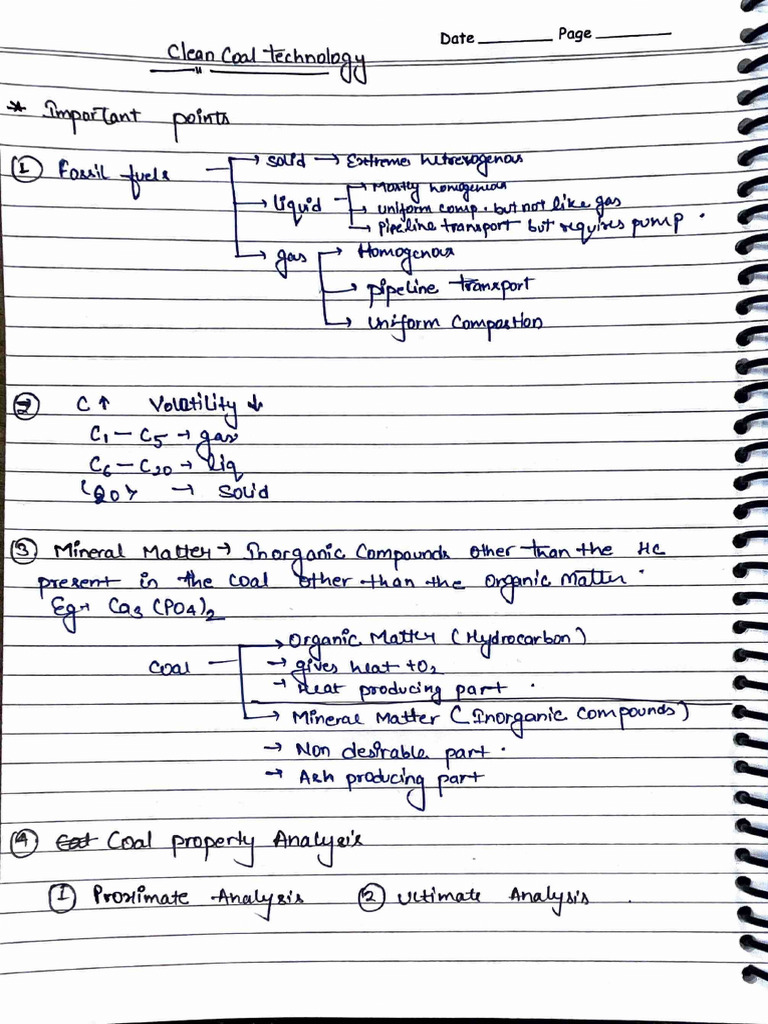 Date ________ Page ________
Clean Coal Technology
* Important points
① Fossil fuels → solid → Extreme hetrerogenous
→ liquid → Mostly homogenious
→ uniform comp. but not like gas
→ pipeline transport but requires pump.
→ gas → Homogenous
→ pipeline transport
→ Uniform Compostion
② C ↑ Volatility ↓
C₁ – C₅ → gas
C₆ – C₂₀ → liq
→ solid
③ Mineral Matter → Inorganic Compounds other than the HC
present in the coal other than the organic matter.
Eg→ Ca₃(PO₄)₂
Coal → Organic Matter (Hydrocarbon)
→ gives heat + O₂
→ Heat producing part.
→ Mineral Matter (Inorganic compounds)
→ Non desirable part.
→ Ash producing part
④ Coal property Analysis
① Proximate Analysis ② Ultimate Analysis.